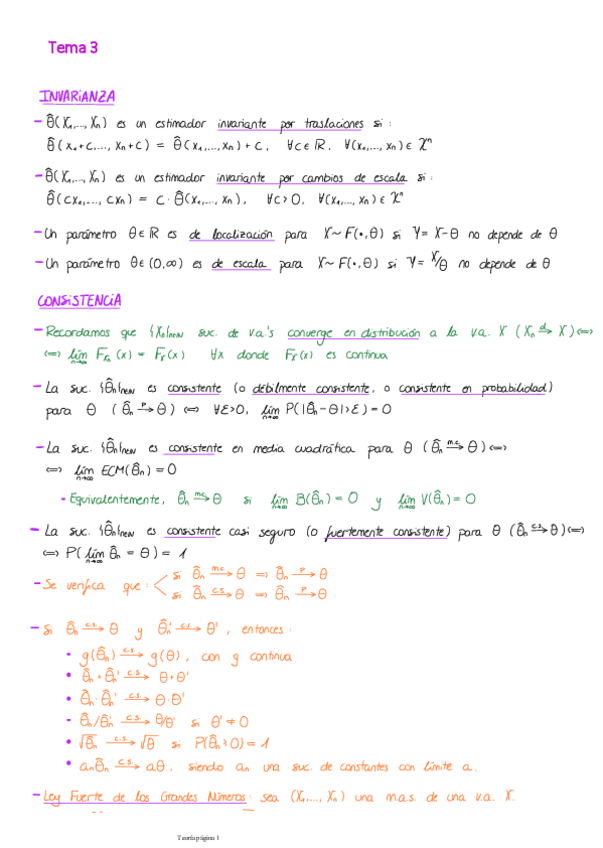 Tema 3
INVARIANZA
- θ̂(X₁,..., Xₙ) es un estimador invariante por traslaciones si:
θ̂(x₁+c,..., xₙ+c) = θ̂(x₁,..., xₙ) + c, ∀c∈ℝ, ∀(x₁,..., xₙ) ∈ χⁿ
- θ̂(X₁,..., Xₙ) es un estimador invariante por cambios de escala si:
θ̂(cx₁,..., cxₙ) = c·θ̂(x₁,..., xₙ), ∀c>0, ∀(x₁,..., xₙ) ∈ χⁿ
- Un parámetro θ∈ℝ es de localización para X~F(•,θ) si Y=X-θ no depende de θ
- Un parámetro θ∈(0,∞) es de escala para X~F(•,θ) si Y=X/θ no depende de θ
CONSISTENCIA
- Recordamos que {Xₙ}ₙ∈ℕ suc. de v.a.'s converge en distribución a la v.a. X (Xₙ →ᵈ X) ⟺
⟺ lim n→∞ Fₓₙ(x) = Fₓ(x) ∀x donde Fₓ(x) es continua
- La suc. {θ̂ₙ}ₙ∈ℕ es consistente (o débilmente consistente, o consistente en probabilidad)
para θ (θ̂ₙ →ᵖ θ) ⟺ ∀ε>0, lim n→∞ P(|θ̂ₙ-θ|>ε) = 0
- La suc. {θ̂ₙ}ₙ∈ℕ es consistente en media cuadrática para θ (θ̂ₙ →ᵐ·ᶜ· θ) ⟺
⟺ lim n→∞ ECM(θ̂ₙ) = 0
• Equivalentemente, θ̂ₙ →ᵐ·ᶜ· θ si lim n→∞ B(θ̂ₙ) = 0 y lim n→∞ V(θ̂ₙ) = 0
- La suc. {θ̂ₙ}ₙ∈ℕ es consistente casi seguro (o fuertemente consistente) para θ (θ̂ₙ →ᶜ·ˢ· θ) ⟺
⟺ P(lim n→∞ θ̂ₙ = θ) = 1
- Se verifica que: si θ̂ₙ →ᵐ·ᶜ· θ ⟹ θ̂ₙ →ᵖ θ
si θ̂ₙ →ᶜ·ˢ· θ ⟹ θ̂ₙ →ᵖ θ
- Si θ̂ₙ →ᶜ·ˢ· θ y θ̂ₙ' →ᶜ·ˢ· θ', entonces:
• g(θ̂ₙ) →ᶜ·ˢ· g(θ), con g continua
• θ̂ₙ+θ̂ₙ' →ᶜ·ˢ· θ+θ'
• θ̂ₙ·θ̂ₙ' →ᶜ·ˢ· θ·θ'
• θ̂ₙ/θ̂ₙ' →ᶜ·ˢ· θ/θ' si θ' ≠ 0
• √θ̂ₙ →ᶜ·ˢ· √θ si P(θ̂ₙ≥0)=1
• aₙθ̂ₙ →ᶜ·ˢ· aθ, siendo aₙ una suc. de constantes con límite a.
- Ley Fuerte de los Grandes Números: sea (X₁,..., Xₙ) una m.a.s. de una v.a. X.
Teoría página 1